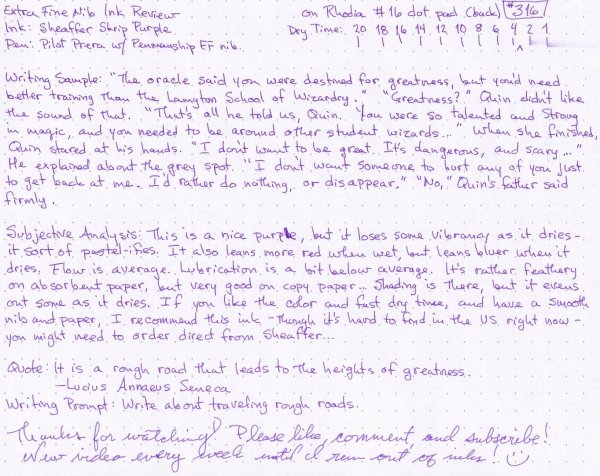 Extra Fine Nib Ink Review on Rhodia #16 dot pad (back) #316
Ink: Sheaffer Skrip Purple Dry Time: 20 18 16 14 12 10 8 6 4 2 1
Pen: Pilot Prera w/ Penmanship EF nib.
Writing Sample: "The oracle said you were destined for greatness, but you'd need
better training than the Lamyton School of Wizardry." "Greatness?" Quin didn't like
the sound of that. "That's all he told us, Quin. You were so talented and strong
in magic, and you needed to be around other student wizards..." When she finished,
Quin stared at his hands. "I don't want to be great. It's dangerous, and scary..."
He explained about the grey spot. "I don't want someone to hurt any of you just
to get back at me. I'd rather do nothing, or disappear." "No," Quin's father said
firmly.
Subjective Analysis: This is a nice purple, but it loses some vibrancy as it dries -
it sort of pastel-ifies. It also leans more red when wet, but leans bluer when it
dries. Flow is average. Lubrication is a bit below average. It's rather feathery
on absorbent paper, but very good on copy paper... Shading is there, but it evens
out some as it dries. If you like the color and fast dry time, and have a smooth
nib and paper, I recommend this ink - though it's hard to find in the US right now -
you might need to order direct from Sheaffer...
Quote: It is a rough road that leads to the heights of greatness.
-Lucius Annaeus Seneca
Writing Prompt: Write about traveling rough roads.
Thanks for watching! Please like, comment, and subscribe!
New video every week until I run out of inks!